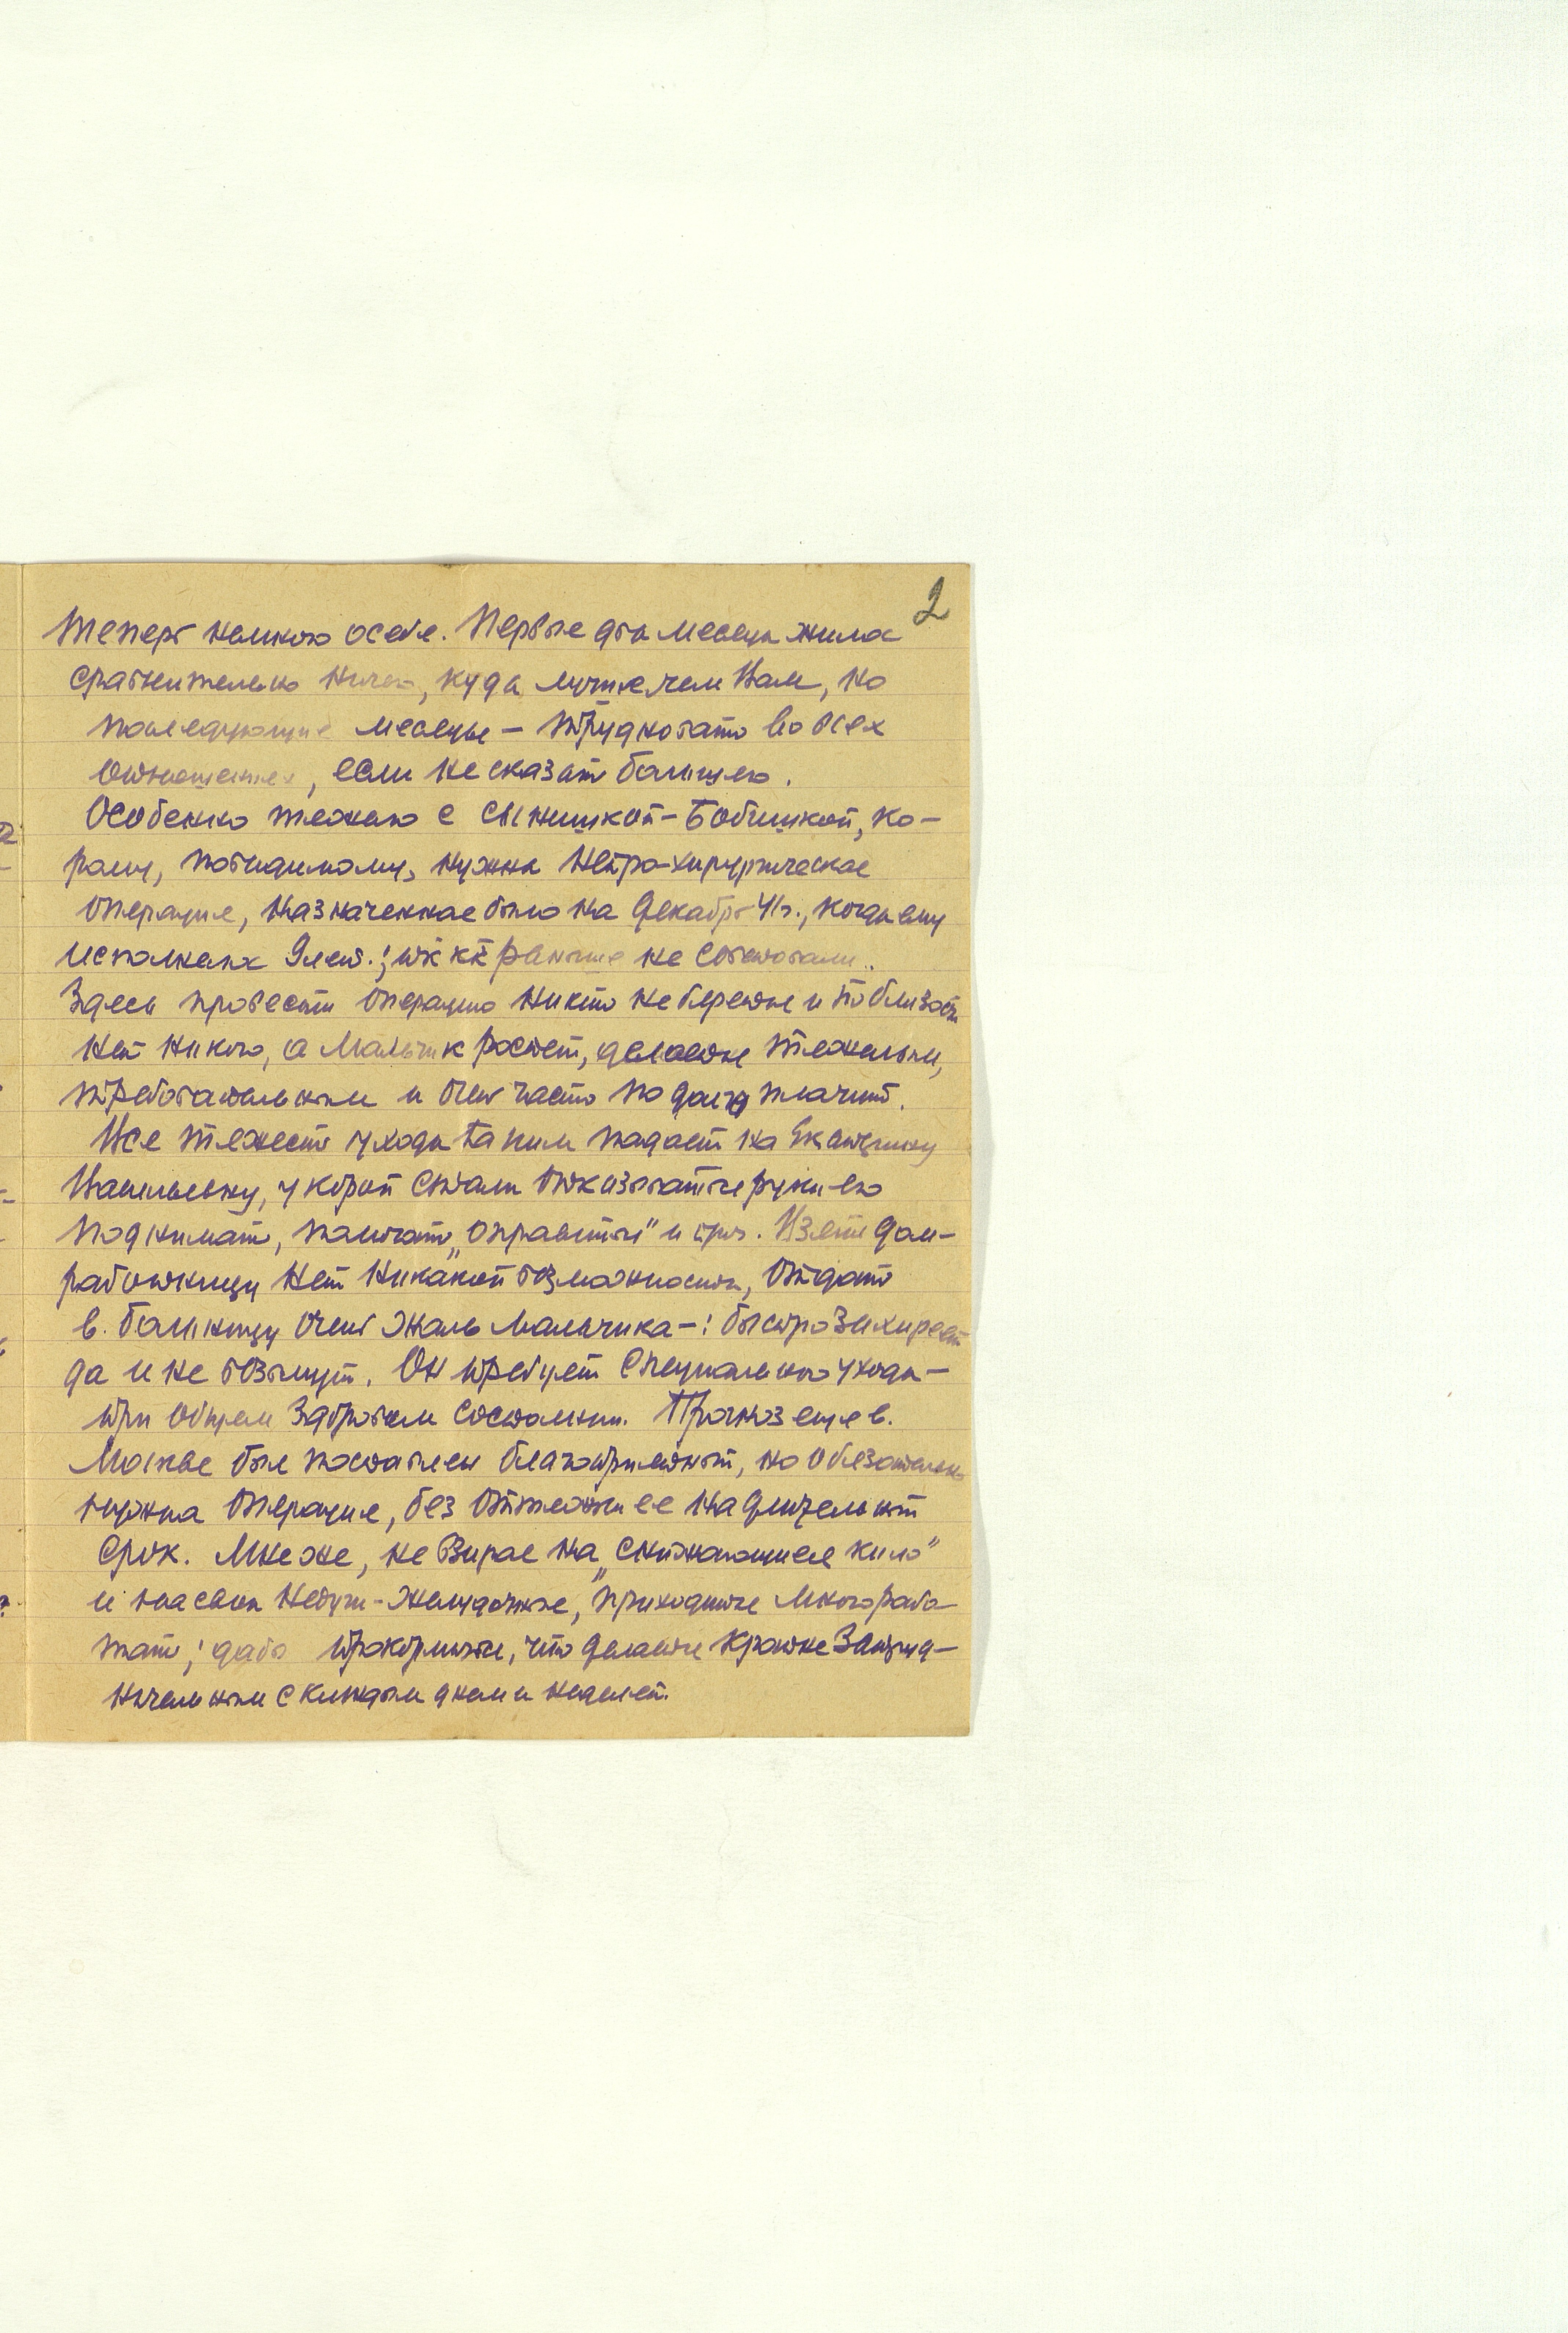 2
Теперь немного о себе. Первые два месяца жилось
сравнительно ничего, куда лучше чем Вам, но
последующие месяцы — трудновато во всех
отношениях, если не сказать больше.
Особенно тяжело с сынишкой – Бобишкой, ко-
рому, повидимому, нужна Нейро-хирургическая
операция, назначенная было на декабрь 41г., когда ему
исполнилось 9 лет.; т.к. раньше не советовали.
Здесь провести операцию никто не берется и поблизости
нет никого, а мальчик растет, делается тяжелым,
требовательным и очень часто подолгу плачит.
Вся тяжесть ухода за ним падает на Екатерину
Васильевну, у корой стали отказываться руки его
поднимать, помогать „оправиться" и проч. Взять дом-
работницу нет никакой возможности, отдать
в больницу очень жаль мальчика –: быстро захиреет
да и не возьмут. Он требует специального ухода –
при общем здоровом состоянии. Прогноз еще в
Москве был поставлен благоприятный, но обязательно
нужна операция, без оттяжки ее на длительный
срок. Мне же, не взирая на „снижающиеся кило"
и на свои недуги – желудочные, приходится много рабо-
тать; дабы прокормиться, что делается крайне затруд-
нительным с каждым днем и неделей.